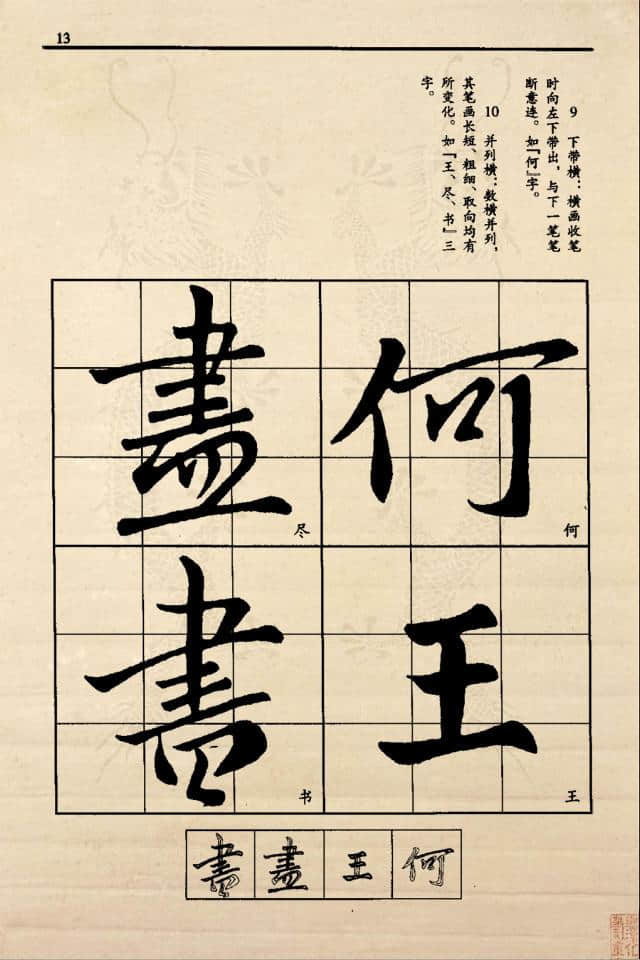 13
9　下带横：横画收笔
时向左下带出，与下一笔笔
断意连。如『何』字。
10　并列横：数横并列，
其笔画长短、粗细、取向均有
所变化。如『王、尽、书』三
字。
何
何
王
王
盡
尽
書
书
何
王
盡
書